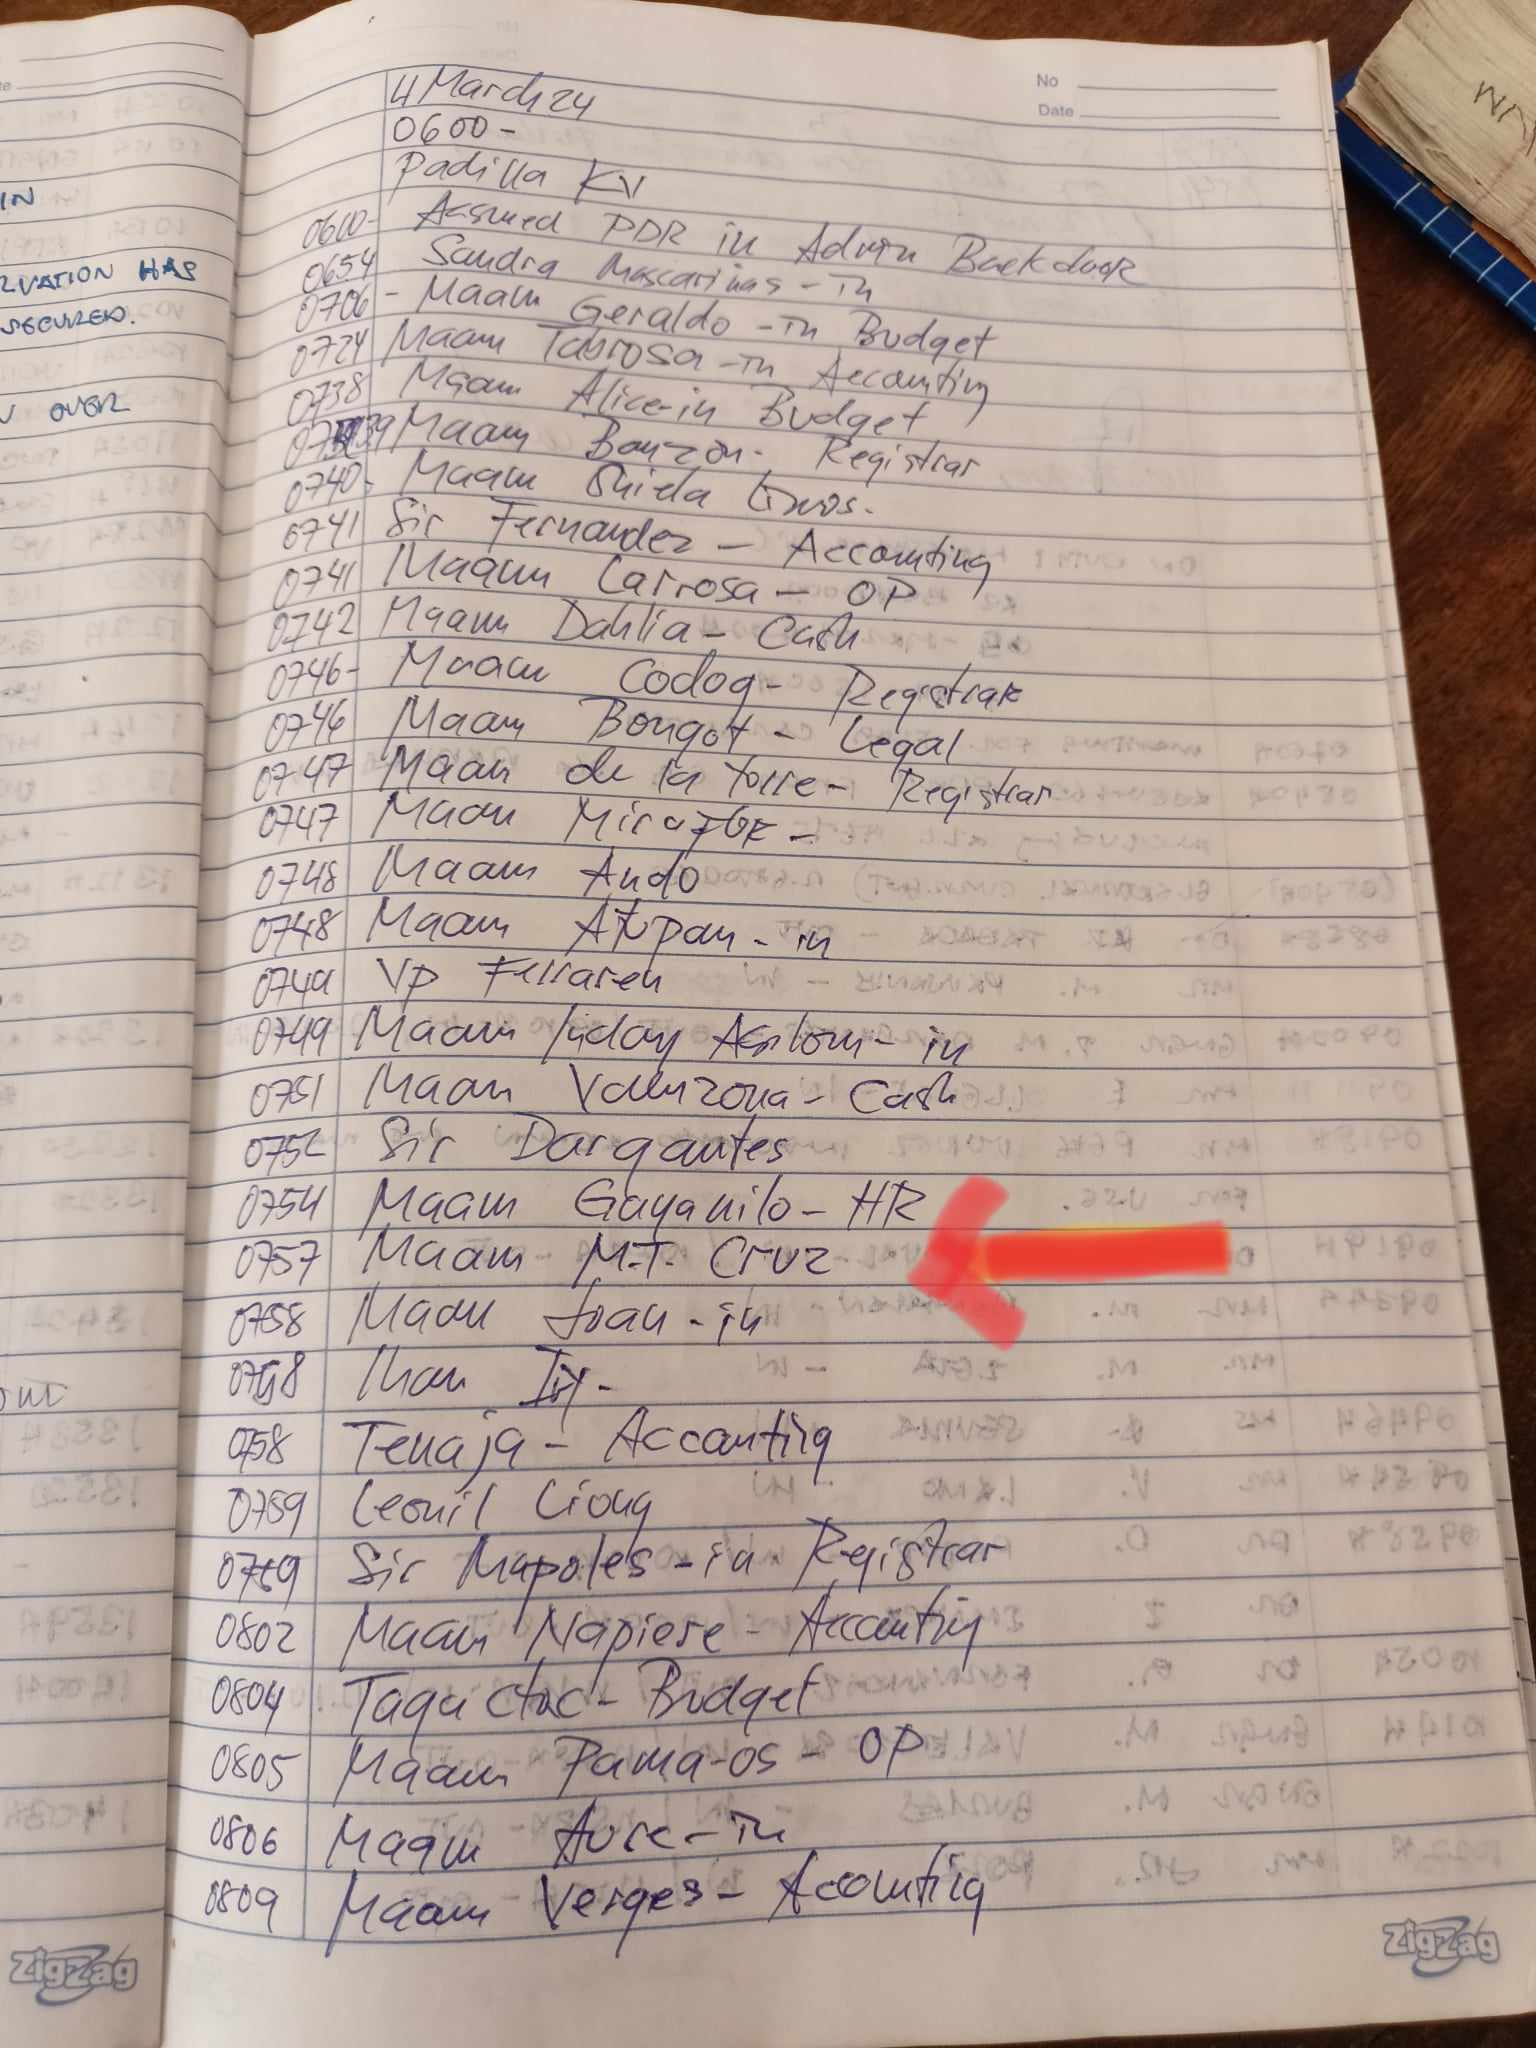 No
Date
4 March 24
0600-
Padilla KV
0600- Assumed PDR in Admin Backdoor
0654 Sandra Mascarinas - in
0706 - Maam Geraldo - in Budget
0724 Maam Tabrosa - in Accounting
0738 Maam Alice - in Budget
0739 Maam Bonzon - Registrar
0740- Maam Shiela
0741 Sir Fernandez - Accounting
0741 Maam Carrosa - OP
0742 Maam Dahlia - Cash
0746- Maam Codog - Registrar
0746 Maam Bongot - Legal
0747 Maam de la Torre - Registrar
0747 Maam
0748 Maam Ando
0748 Maam Atupan - in
0749 VP Ferraren
0749 Maam Liday - in
0751 Maam Valenzona - Cash
0752 Sir Dargantes
0754 Maam Gayanilo - HR
0757 Maam M.T. Cruz
0758 Maam Joan - in
0758
0758 Tenaja - Accounting
0759 Leonil Liong
0759 Sir Mapoles - in Registrar
0802 Maam Napiere - Accounting
0804 Budget
0805 Maam Pama-os - OP
0806 Maam Aure - in
0809 Maam Verges - Accounting
IN
HAS
SECURED.
OVER
ZigZag
ZigZag